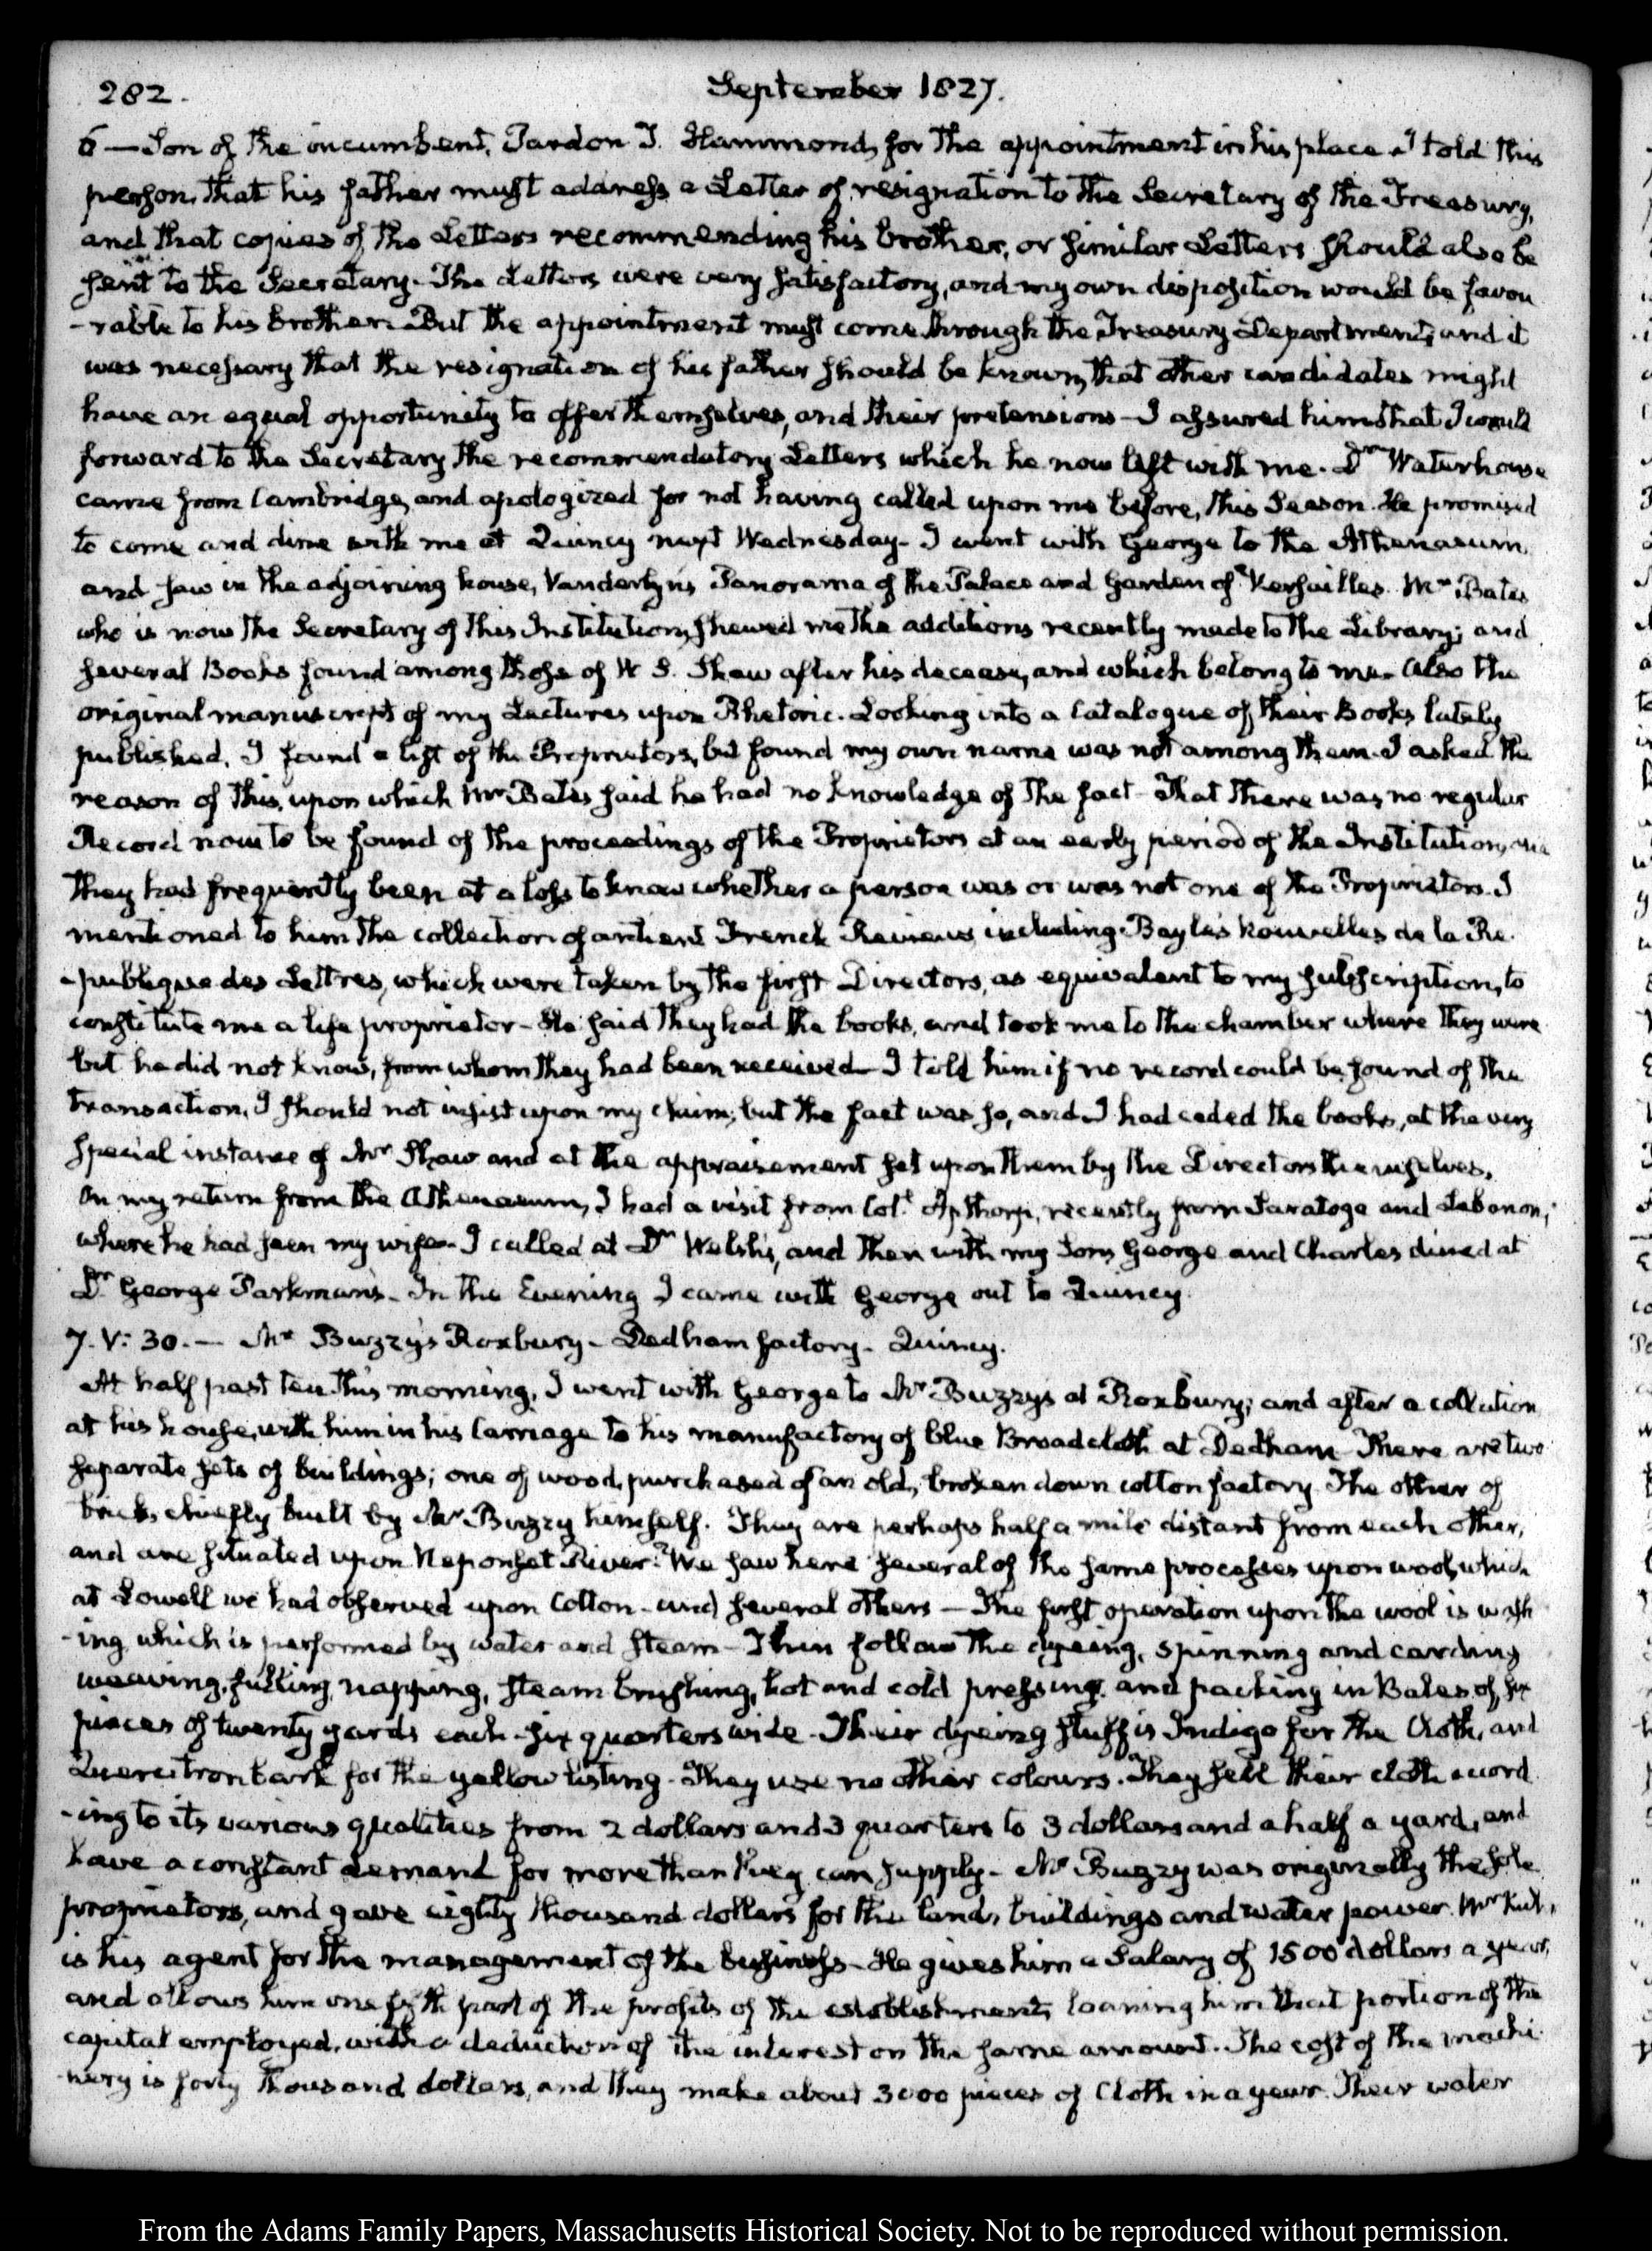 282.
September 1827.
6 — Son of the incumbent, Pardon T. Hammond, for the appointment in his place. I told this
person, that his father must address a Letter of resignation to the Secretary of the Treasury,
and that copies of the Letters recommending his brother, or similar Letters should also be
sent to the Secretary. The Letters were very satisfactory, and my own disposition would be favou
-rable to his brother. But the appointment must come through the Treasury Department, and it
was necessary that the resignation of his father should be known, that other candidates might
have an equal opportunity to offer themselves, and their pretensions — I assured him that I would
forward to the Secretary the recommendatory Letters which he now left with me. Dr Waterhouse
came from Cambridge, and apologized for not having called upon me before, this Season. He promised
to come and dine with me at Quincy next Wednesday. I went with George to the Athenaeum,
and saw in the adjoining house, Vanderlyn's Panorama of the Palace and Garden of Versailles. Mr Bates
who is now the Secretary of this Institution, shewed me the additions recently made to the Library; and
several Books found among those of W. S. Shaw after his decease, and which belong to me. Also the
original manuscript of my Lectures upon Rhetoric. Looking into a Catalogue of their Books lately
published, I found a list of the Proprietors, but found my own name was not among them. I asked the
reason of this, upon which Mr Bates said he had no knowledge of the fact - That there was no regular
Record now to be found of the proceedings of the Proprietors at an early period of the Institution, and
they had frequently been at a loss to know whether a person was or was not one of the Proprietors. I
mentioned to him the collection of antient French Reviews including Bayle's Nouvelles de la Re
-publique des Lettres, which were taken by the first Directors, as equivalent to my subscription, to
constitute me a life proprietor - He said they had the books, and took me to the chamber where they were
but he did not know, from whom they had been received - I told him if no record could be found of the
transaction, I should not insist upon my claim; but the fact was so, and I had ceded the books, at the very
special instance of Mr Shaw and at the appraisement set upon them by the Directors themselves.
On my return from the Athenaeum, I had a visit from Colt. Apthorp, recently from Saratoga and Lebanon,
where he had seen my wife - I called at Dr Welsh's, and then with my Sons George and Charles dined at
Dr George Parkman's - In the Evening I came with George out to Quincy.
7. V: 30. — Mr Buzzy's Roxbury - Dedham factory - Quincy.
At half past ten this morning, I went with George to Mr Buzzy's at Roxbury; and after a collation
at his house, with him in his Carriage to his manufactory of blue Broadcloth at Dedham - There are two
separate sets of buildings; one of wood, purchased of an old, broken down cotton factory. The other of
brick, chiefly built by Mr Buzzy himself. They are perhaps half a mile distant from each other,
and are situated upon Neponset River. We saw here several of the same processes upon wool, which
at Lowell we had observed upon Cotton - and several others — The first operation upon the wool is wash
-ing, which is performed by water and steam - Then follow the dyeing, spinning and carding
weaving, fulling, napping, steam brushing, hot and cold pressing, and packing in Bales of six
pieces of twenty yards each - six quarters wide - Their dyeing stuff is Indigo for the Cloth, and
Quercitron bark for the yellow listing - They use no other colours. They sell their cloth accord
-ing to its various qualities from 2 dollars and 3 quarters to 3 dollars and a half a yard, and
have a constant demand for more than they can supply - Mr Buzzy was originally the sole
proprietor, and gave eighty thousand dollars for the land, buildings and water power. Mr
is his agent for the management of the business - He gives him a Salary of 1500 dollars a year,
and allows him one fifth part of the profits of the establishment, loaning him that portion of the
capital employed, with a deduction of the interest on the same amount. The cost of the machi
-nery is forty thousand dollars, and they make about 3000 pieces of Cloth in a year. Their water
From the Adams Family Papers, Massachusetts Historical Society. Not to be reproduced without permission.